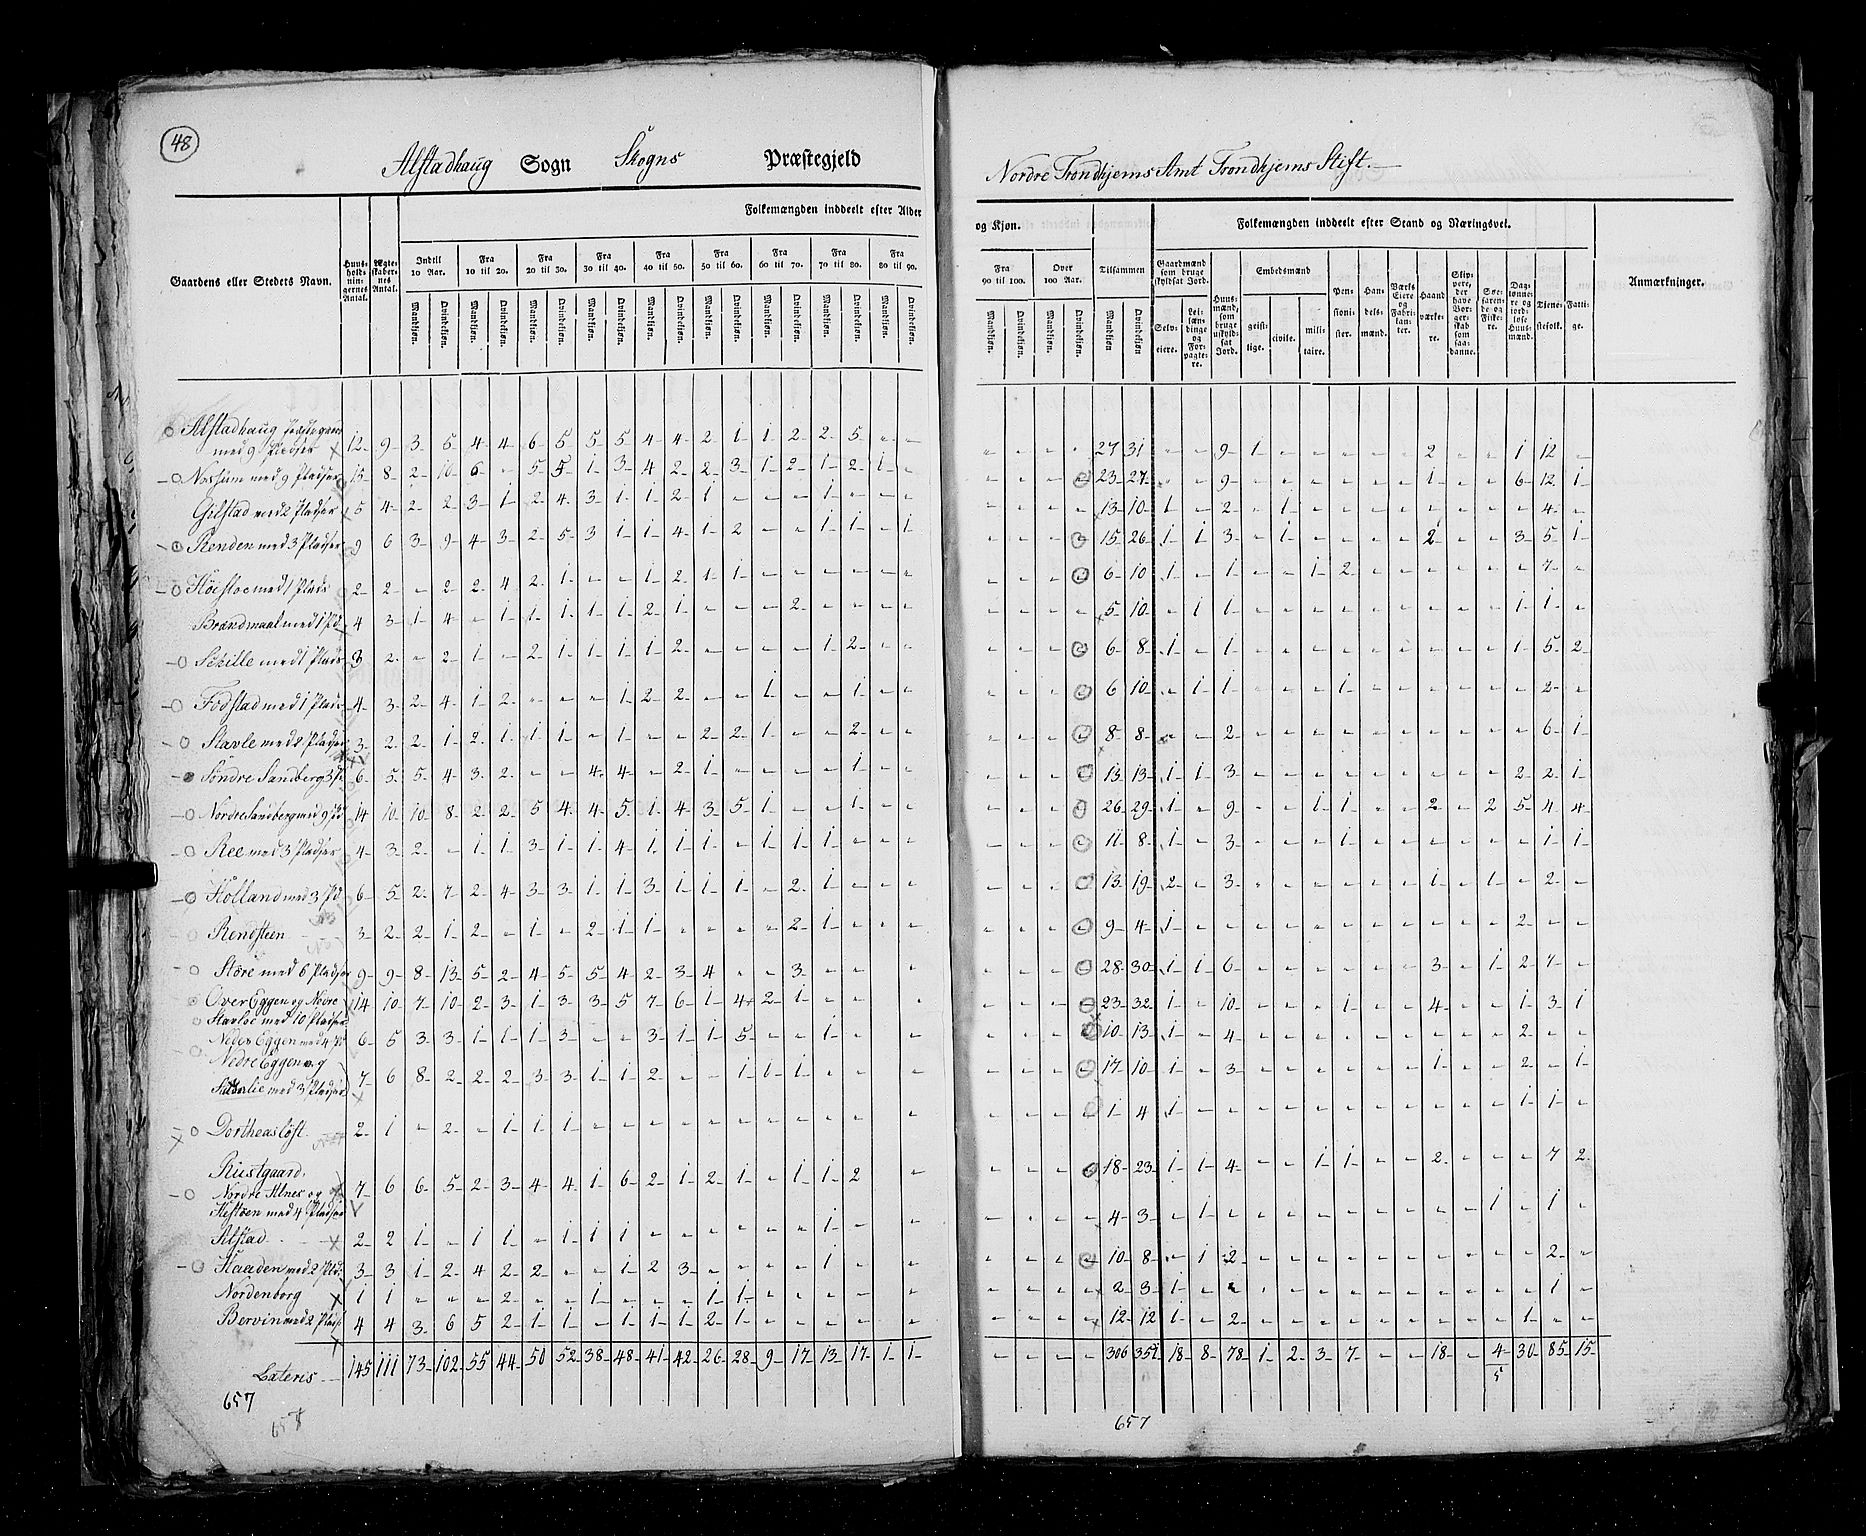 48
Alstadhaug Sogn Skogns Præstegjeld
Nordre Trondhjems Amt Trondhjems Stift.
Gaardens eller Stedets Navn.
Huus-holdningernes Antal.
Ægteskabernes Antal.
Folkemængden inddeelt efter Alder
og Kjøn.
Indtil 10 Aar.
Fra 10 til 20.
Fra 20 til 30.
Fra 30 til 40.
Fra 40 til 50.
Fra 50 til 60.
Fra 60 til 70.
Fra 70 til 80.
Fra 80 til 90.
Fra 90 til 100.
Over 100 Aar.
Tilsammen
Mandkjøn. Qvindekjøn.
Folkemængden inddeelt efter Stand og Næringsvei.
Gaardmænd som bruge skyldsat Jord.
Selveiere.
Leilændinge og Forpagtere.
Huusmænd, som bruge uskyldsat Jord.
Embedsmænd
geistlige.
civile.
militaire.
Pensionister.
Handelsmænd.
Værks Eiere og Fabrikanter.
Haandværkere.
Skippere, der have Borgerskab som saadanne.
Søefarende og Fiskere.
Daglønnere og jordløse Huusmænd.
Tjenestefolk.
Fattige.
Anmærkninger.
Alstadhaug
med 9 Pladser 12 9 3 5 4 4 6 5 5 5 4 4 2 1 1 2 2 5 - - - - - - 27 31 - - 9 1 - - - - - 2 - - 1 12 -
Nossum med 9 Pladser 13 8 2 10 6 - 5 5 1 3 4 2 2 3 1 2 1 2 1 - - - - - 23 27 - - 9 - - - - - - 1 - - 6 12 1
Gilstad med 2 Pladser 5 4 2 2 3 1 2 4 3 1 1 2 1 - - - 1 - - - - - - - 13 10 1 - 2 - 1 - - - - - - - - 4 -
Renden med 3 Pladser 9 6 3 9 4 3 2 5 3 1 1 4 1 2 - - 1 1 - 1 - - - - 15 26 1 1 3 - 1 - - - - 2 - - 3 5 1
med 1 Plads 2 2 - 2 2 4 2 1 - - 1 2 1 1 - - - - - - - - - - 6 10 1 - 1 - - 1 2 - - - - - - 7 -
Brandmaal med 1 Pd. 4 3 1 4 - 1 1 1 1 1 2 1 - - - 2 - - - - - - - - 5 10 - 1 1 - - - - - - - - - 1 1 -
med 1 Plads 3 2 - 2 1 - 2 1 1 1 1 2 - - - - 1 2 - - - - - - 6 8 1 - 1 - - - - - - - - - 1 5 2
Fodstad med 1 Plads 4 3 2 4 1 2 - - - 1 2 2 - - 1 - - 1 - - - - - - 6 10 - 1 1 - - - 1 - - - - - - 2 -
Stavle med 2 Pladser 3 2 2 1 2 1 1 1 - 1 - - 2 2 1 - - 2 - - - - - - 8 8 - - 2 - - - - - - - - - - 6 1
Søndre Sandberg 3 Pl. 6 5 5 4 3 2 - - 4 4 - 2 1 - - - - 1 - - - - - - 13 13 1 1 3 - - - - - - - - - 2 2 1
Nordre Sandberg med 9 Pd 14 10 10 8 2 2 5 4 4 5 1 4 3 5 1 - - 1 - - - - - - 26 29 1 - 9 - - 1 1 - - 2 - 2 5 4 4
Ree med 3 Pladser 4 3 2 - 1 1 3 1 1 4 1 1 1 - 1 1 1 - - - - - - - 11 8 1 - 3 - - - 1 - - - - - - 1 1
Holland med 3 Pd 6 5 2 7 2 4 3 3 1 1 3 1 1 1 - 2 1 - - - - - - - 13 19 2 - 3 - - - - - - 1 - 1 - 2 -
Rendsteen 3 2 2 1 2 - 1 - 2 1 1 - - - - 2 1 - - - - - - - 9 4 1 - - - - - - - - - - - 2 - -
Støre med 6 Pladser 9 9 8 13 5 2 4 5 5 4 2 3 4 - - 3 - - - - - - 28 30 1 1 6 - - - - - - 3 - 1 2 7 -
Over Eggen og Nodre
Stavloe med 10 Pladser 14 10 7 10 2 3 1 3 3 5 7 6 1 4 2 1 - - - - - - 23 32 1 - 10 - - - 1 - - 4 - - 1 3 1
Neder Eggen med 4 Pd 6 5 3 3 1 1 1 3 - - 3 1 1 5 - - 1 - - - - - - 10 13 1 - 4 - - - - - - - - - 2 - -
Nedre Eggen og
med 3 Pladser 7 6 8 2 2 2 3 3 1 1 2 - - 1 1 1 1 - - - - - - 17 10 1 - 3 - - - - - - 1 - - 2 - 1
Dortheasløst 2 1 - 2 - 1 1 1 - - - - - - - - - - - - - - - 1 4 1 - - - - - - - - - - - 1 1 -
Rustgaard,
Nordre Alnes og
Hestøen med 4 Pladser 7 6 6 5 2 3 4 4 1 6 2 1 2 1 - 1 1 2 - - - - - 18 23 1 1 4 - - 1 1 - - 2 - - - 7 2
Alstad 2 2 1 - 1 1 - 1 1 1 - - - - - - 1 - - - - - - 4 3 - 1 - - - - - - - - - 1 - 1 -
Haaden med 2 Pld. 3 3 1 2 4 2 2 - - 1 2 3 - - - - 1 - - - - - - 10 8 - 1 2 - - - - - - - - - - 2 -
Nordenborg 1 1 - - - 2 - - 1 - - - 1 1 - - - - - - - - - 2 3 1 - - - - - - - - - - - - 1 -
Bervin med 2 Plads. 4 4 3 6 5 2 1 1 - 1 1 1 2 1 - - - - - - - - - 12 12 1 - 2 - - - - - - - - - 1 - -
Lateris 145 111 73 102 55 44 50 52 38 48 41 42 26 28 9 17 13 17 1 1 - - - - 306 351 18 8 78 1 2 3 7 - - 18 - 4 30 85 15
5
657
657
657